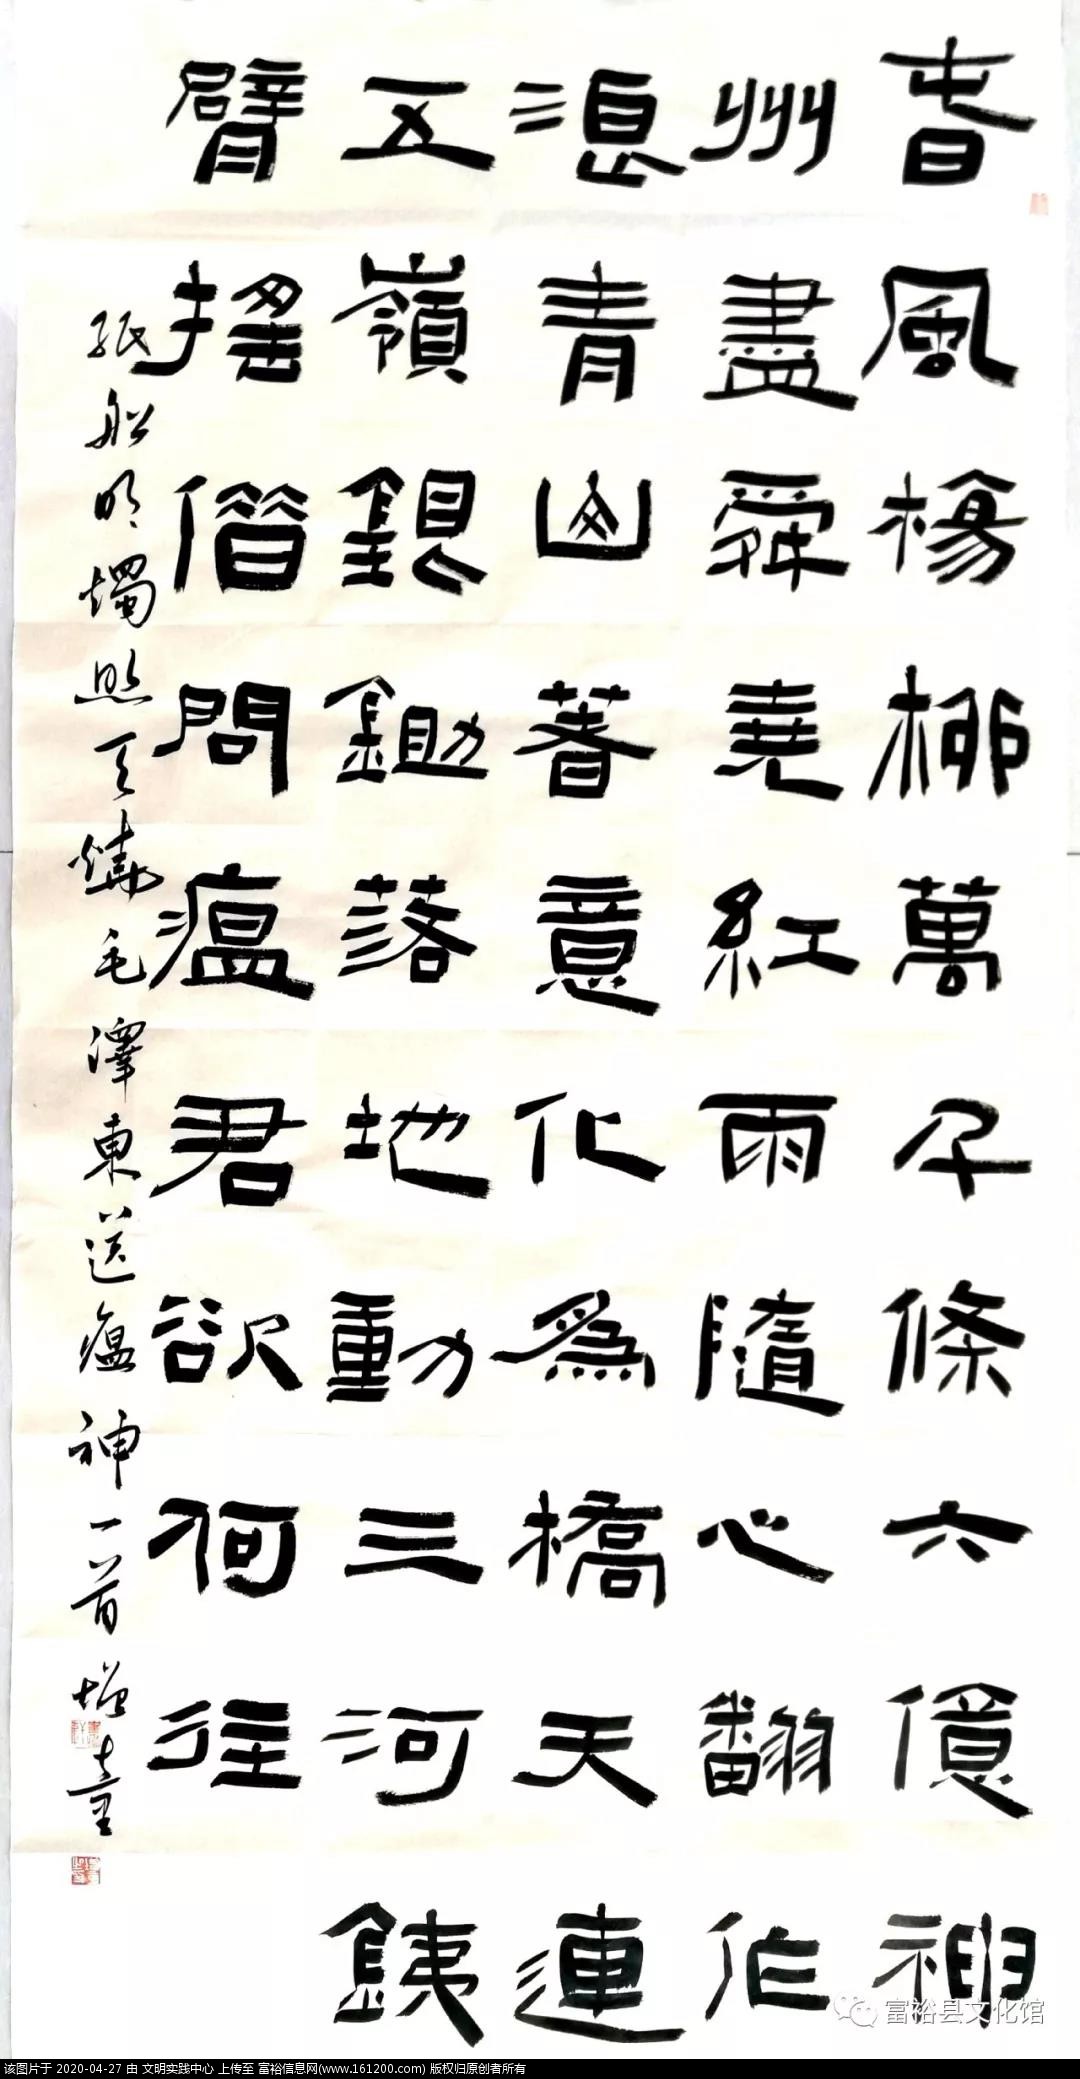 春風楊柳萬千條六億神
州盡舜堯紅雨隨心翻作
浪青山著意化為橋天連
五嶺銀鋤落地動三河鐵
臂搖借問瘟君欲何往
紙船明燭照天燒毛澤東送瘟神一首
富裕县文化馆
该图片于 2020-04-27 由 文明实践中心 上传至 富裕信息网(www.161200.com) 版权归原创者所有